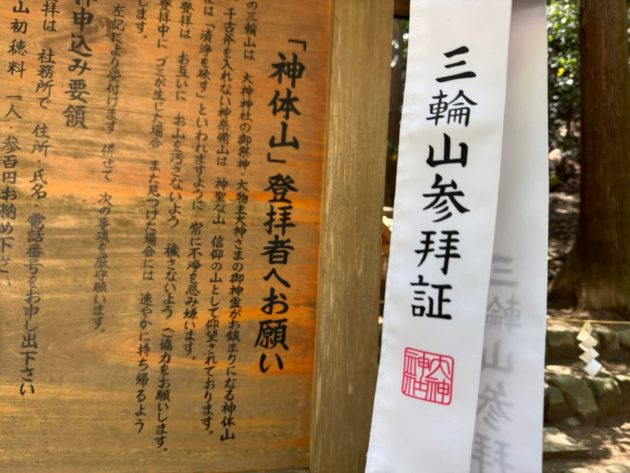 「神体山」登拝者へお願い
の三輪山は 大神神社の御祭神・大物主大神さまの御神霊がお鎮まりになる神体山
千古斧を入れない神奈備山は 神聖な山 信仰の山として仰望されております。
は「清浄を嫁す」といわれますように 常に不浄を忌み嫌います。
登拝は お互いに お山を汚さないよう 穢さないよう ご協力をお願いします。
登拝中に ゴミが生じた場合 また見つけた場合には 速やかに持ち帰るよう
します。
申込み要領
左記により受付けます 併せて 次の事項を厳守願います。
拝は 社務所で 住所・氏名 電話番号をお申し出下さい
山初穂料 一人・参百円お納め下さい
三輪山参拝証
大神神社
三輪山参拝